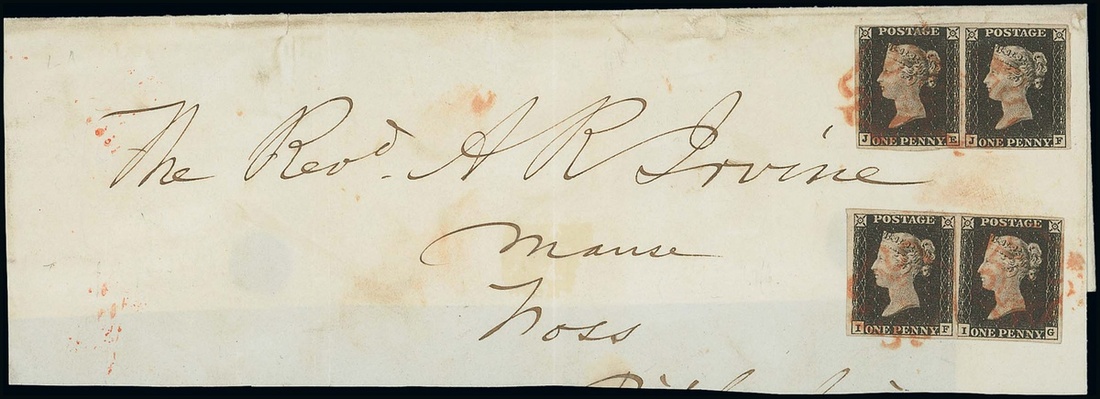 POSTAGE POSTAGE
J E J F
ONE PENNY. ONE PENNY.
The Revd. A R Irvine
Manse
Foss
POSTAGE POSTAGE
I F I G
ONE PENNY ONE PENNY.